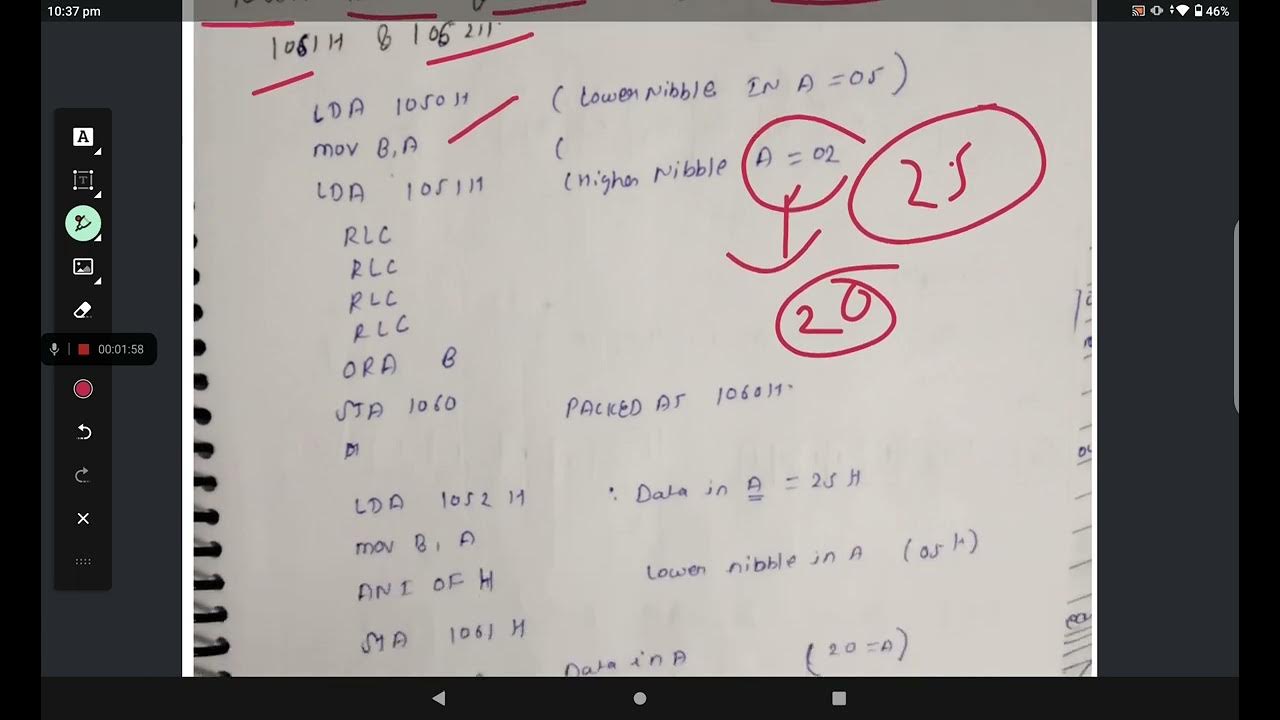 10:37 pm
46%
1061 H & 1062 H
LDA 1050 H ( Lower Nibble IN A = 05 )
mov B, A (
LDA 1051 H ( Higher Nibble A = 02
25
RLC
RLC
RLC
RLC
20
ORA B
STA 1060 PACKED AT 1060 H.
LDA 1052 H : Data in A = 25 H
mov B, A
ANI OF H Lower nibble in A ( 05 H )
STA 1061 H
Data in A ( 20 = A )
A
T
00:01:58